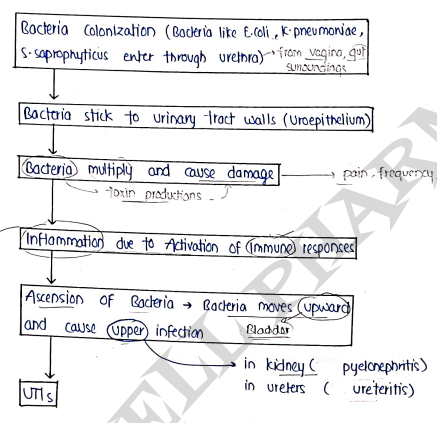 Bacteria Colonization (Bacteria like E.coli, K.pneumoniae,
S.saprophyticus enter through urethra) → from vagina, gut
surroundings
Bacteria stick to urinary tract walls (Uroepithelium)
Bacteria multiply and cause damage → pain, frequency
→ toxin productions -
Inflammation due to Activation of immune responses
Ascension of Bacteria → Bacteria moves upward
and cause upper infection Bladder
in kidney ( pyelonephritis)
in ureters ( ureteritis)
UTIs
ELL PHARM